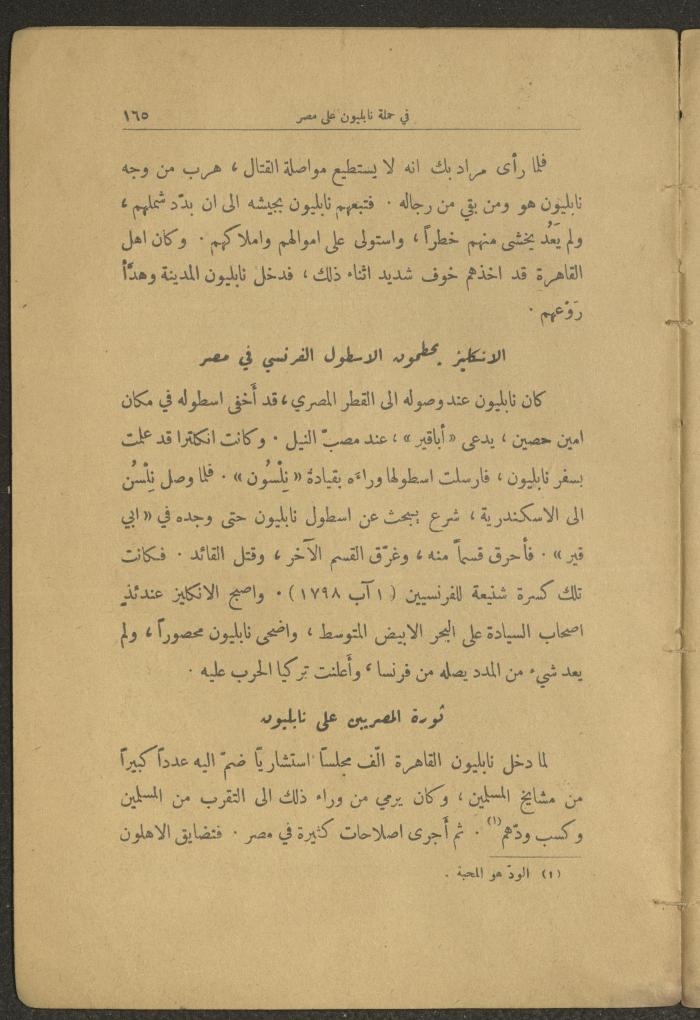 في حملة نابليون على مصر ١٦٥
فلما رأى مراد بك انه لا يستطيع مواصلة القتال ، هرب من وجه
نابليون هو ومن بقي من رجاله . فتبعهم نابليون بجيشه الى ان بدّد شملهم ،
ولم يَعُد يخشى منهم خطراً ، واستولى على اموالهم واملاكهم . وكان اهل
القاهرة قد اخذهم خوف شديد اثناء ذلك ، فدخل نابليون المدينة وهدَّأ
رَوْعهم .
الانكليز يحطمون الاسطول الفرنسي في مصر
كان نابليون عند وصوله الى القطر المصري ، قد أَخفى اسطوله في مكان
امين حصين ، يدعى « أباقير » ، عند مصبّ النيل . وكانت انكلترا قد علمت
بسفر نابليون ، فارسلت اسطولها وراءَه بقيادة « نِلْسُون » . فلما وصل نِلْسُن
الى الاسكندرية ، شرع يبحث عن اسطول نابليون حتى وجده في « ابي
قير » . فأحرق قسماً منه ، وغرّق القسم الآخر ، وقتل القائد . فكانت
تلك كسرة شنيعة للفرنسيين ( ١ آب ١٧٩٨ ) . واصبح الانكليز عندئذٍ
اصحاب السيادة على البحر الابيض المتوسط ، واضحى نابليون محصوراً ، ولم
يعد شيء من المدد يصله من فرنسا ، وأَعلنت تركيا الحرب عليه .
ثورة المصريين على نابليون
لما دخل نابليون القاهرة الّف مجلسًا استشاريّا ضمّ اليه عدداً كبيراً
من مشايخ المسلمين ، وكان يرمي من وراء ذلك الى التقرب من المسلمين
وكسب ودّهم (١) . ثم أَجرى اصلاحات كثيرة في مصر . فتضايق الاهلون
(١) الودّ هو المحبة .